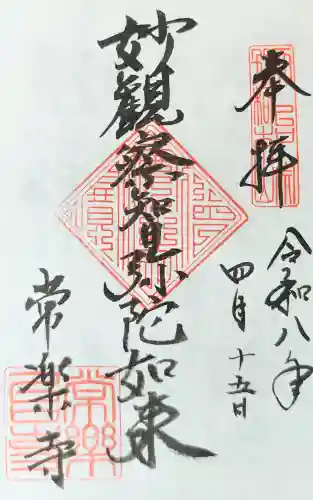 奉拝
令和八年
四月十五日
妙観察智弥陀如来
常楽寺